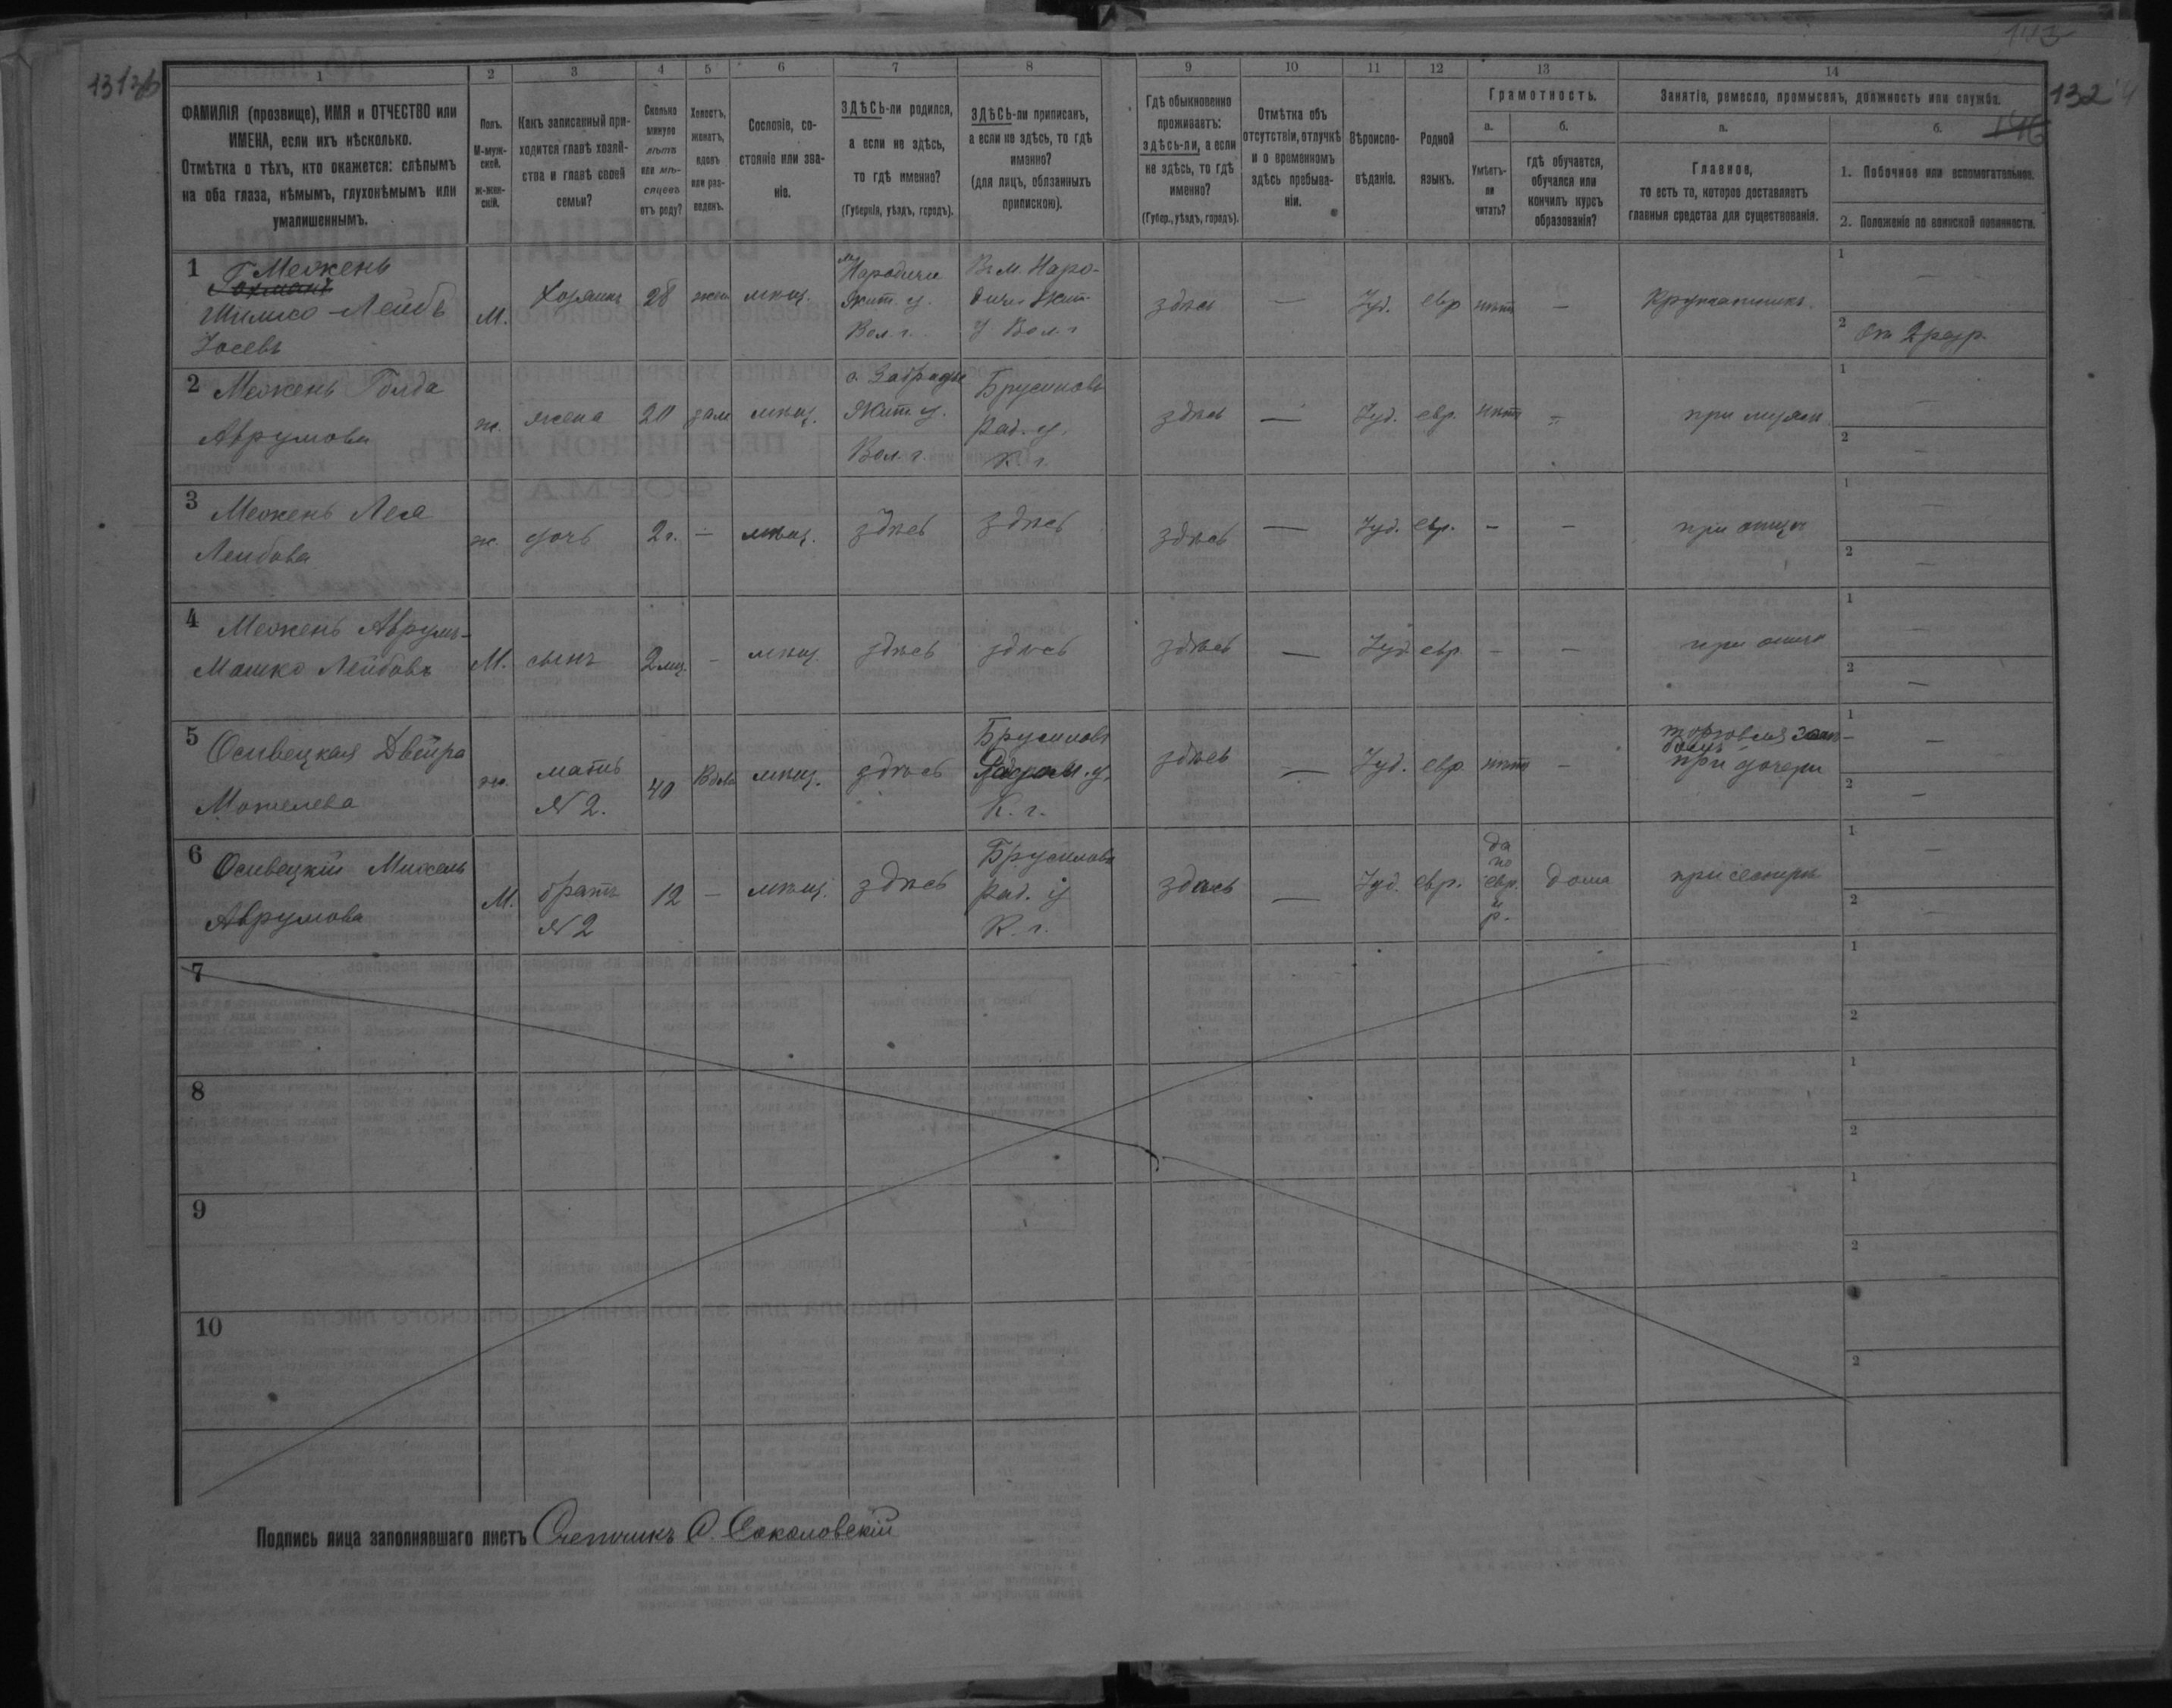 131об
143
132
146
1
2
3
4
5
6
7
8
9
10
11
12
13
14
ФАМИЛІЯ (прозвище), ИМЯ и ОТЧЕСТВО или
ИМЕНА, если ихъ нѣсколько.
Отмѣтка о тѣхъ, кто окажется: слѣпымъ
на оба глаза, нѣмымъ, глухонѣмымъ или
умалишеннымъ.
Полъ.
М-муж-
ской.
ж-жен-
скій.
Какъ записанный при-
ходится главѣ хозяй-
ства и главѣ своей
семьи?
Сколько
минуло
лѣтъ
или мѣ-
сяцевъ
отъ роду?
Холостъ,
женатъ,
вдовъ
или раз-
веденъ.
Сословіе, со-
стояніе или зва-
ніе.
ЗДѢСЬ-ли родился,
а если не здѣсь,
то гдѣ именно?
(Губернія, уѣздъ, городъ).
ЗДѢСЬ-ли приписанъ,
а если не здѣсь, то гдѣ
именно?
(для лицъ, обязанныхъ
припискою).
Гдѣ обыкновенно
проживаетъ:
здѣсь-ли, а если
не здѣсь, то гдѣ
именно?
(Губер., уѣздъ, городъ).
Отмѣтка объ
отсутствіи, отлучкѣ
и о временномъ
здѣсь пребыва-
ніи.
Вѣроиспо-
вѣданіе.
Родной
языкъ.
Грамотность.
а.
б.
Умѣетъ-
ли
читать?
гдѣ обучается,
обучался или
кончилъ курсъ
образованія?
Занятіе, ремесло, промыселъ, должность или служба.
а.
б.
Главное,
то есть то, которое доставляетъ
главныя средства для существованія.
1. Побочное или вспомогательное.
2. Положеніе по воинской повинности.
1 Межень
Шлико-Лейбъ
Іосевъ
М. Хозяинъ 28 жен мѣщ.
м. Народичи
Жит. у.
Вол. г.
Въ м. Наро-
дичи Жит.
у Вол. г
здѣсь — Іуд. евр нѣтъ —
1 —
2 2 разр.
2 Межень Голда
Аврумова
ж. жена 20 зам мѣщ.
Жит. у.
Вол. г.
Брусиловъ
Рад. у.
К г.
здѣсь — Іуд. евр. нѣтъ — при мужѣ
1 —
2 —
3 Межень Лея
Лейбова
ж. дочь 2 г. — мѣщ. здѣсь здѣсь здѣсь — Іуд. евр. - - при отцѣ
1 —
2 —
4 Межень Аврумъ-
Мошко Лейбовъ
М. сынъ 2 мц. — мѣщ здѣсь здѣсь здѣсь — Іуд евр. - - при отцѣ
1 —
2 —
5 Осивецкая Двейра
Мошелева
ж. мать
N 2.
40 Вдова мѣщ. здѣсь
Брусиловъ
Радом. у.
К. г.
здѣсь — Іуд. евр нѣтъ -
торговля
при дочери
1 —
2 —
6 Осивецкій Михель
Аврумова
М. братъ
N 2
12 — мѣщ. здѣсь
Брусиловъ
Рад. у
К. г.
здѣсь — Іуд. евр.
да
по
евр.
и
р.
дома при сестрѣ
1 —
2 —
7
1
2
8
1
2
9
1
2
10
1
2
Подпись лица заполнявшаго листъ Счетчикъ А. Соколовскій